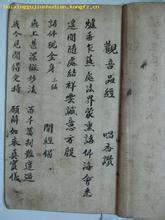 觀音品經 唱香讚
爐香乍爇法界蒙熏諸佛海會悉
遙聞隨處結祥雲誠意方殷
諸佛現全身
開經偈
無上甚深微妙法 百千萬劫難遭遇
我今見聞得受持 願解如來真實義